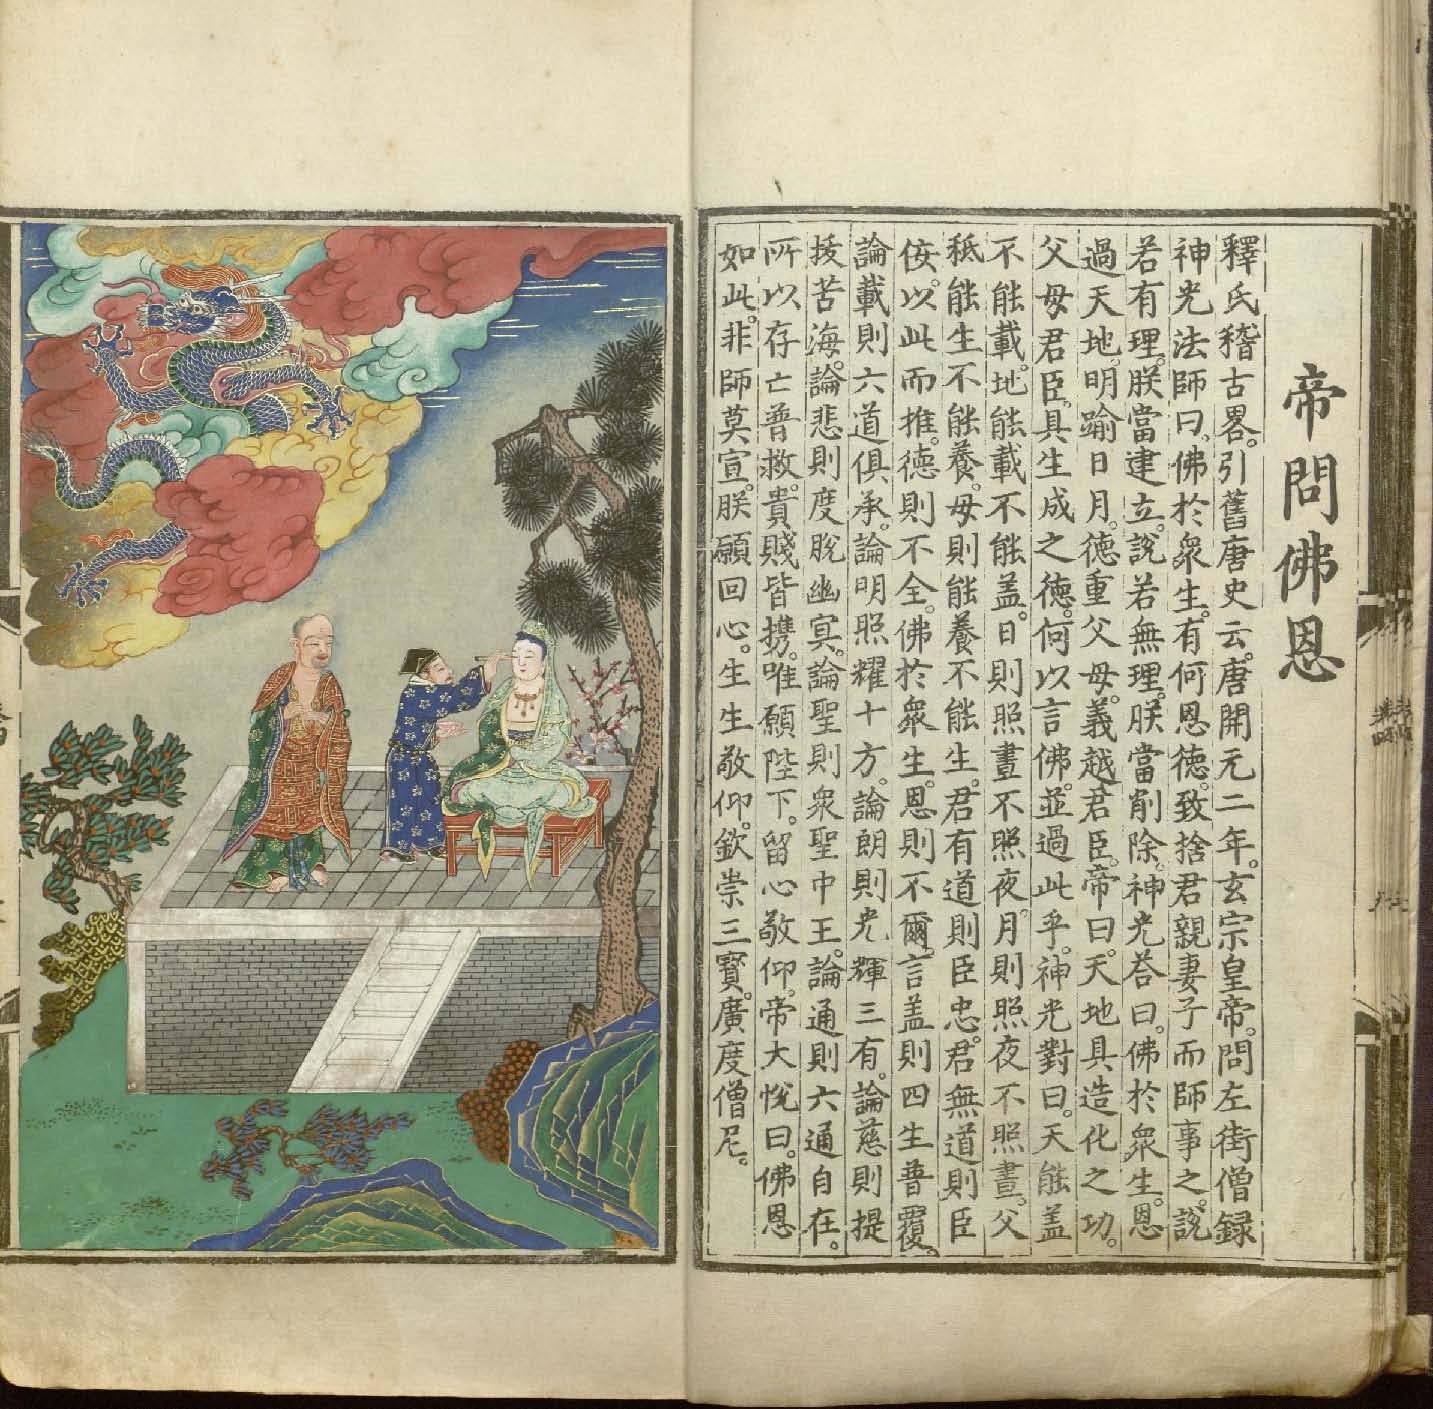 帝問佛恩
釋氏稽古畧。引舊唐史云。唐開元二年。玄宗皇帝。問左街僧録
神光法師曰。佛於衆生。有何恩德。致捨君親妻子而師事之。說
若有理。朕當建立。說若無理。朕當削除。神光荅曰。佛於衆生。恩
過天地。明踰日月。德重父母。義越君臣。帝曰。天地具造化之功。
父母君臣。具生成之德。何以言佛。並過此乎。神光對曰。天能蓋
不能載。地能載不能蓋。日則照晝不照夜。月則照夜不照晝。父
秪能生不能養。母則能養不能生。君有道則臣忠。君無道則臣
佞。以此而推。德則不全。佛於衆生。恩則不爾。言蓋則四生普覆。
論載則六道俱承。論明照耀十方。論朗則光輝三有。論慈則提
拔苦海。論悲則度脫幽冥。論聖則衆聖中王。論通則六通自在。
所以存亡普救。貴賤皆携。唯願陛下。留心敬仰。帝大悅曰。佛恩
如此。非師莫宣。朕願回心。生生敬仰。欽崇三寳。廣度僧尼。